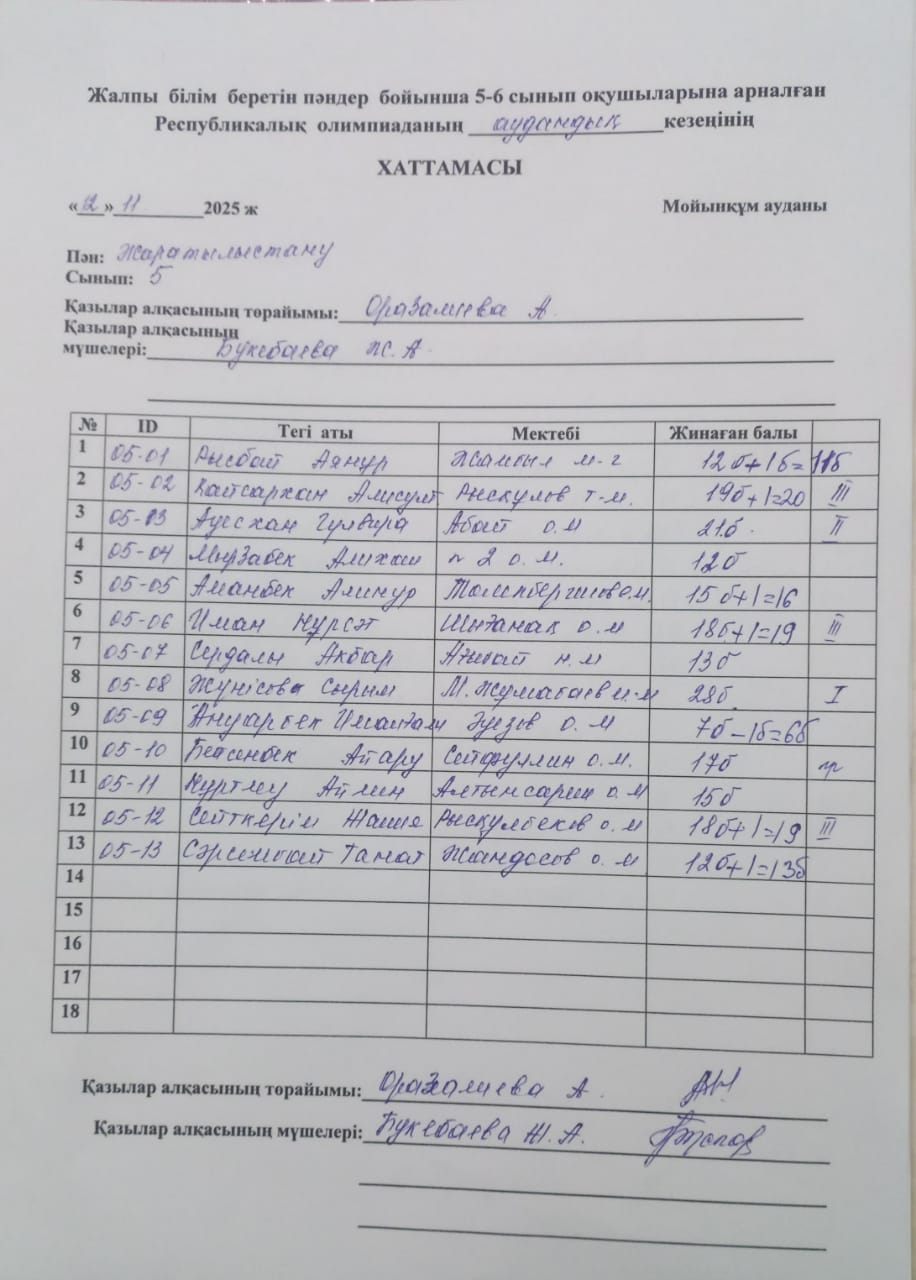 Жалпы білім беретін пәндер бойынша 5-6 сынып оқушыларына арналған
Республикалық олимпиаданың аудандық кезеңінің
ХАТТАМАСЫ
«12» 11 2025 ж Мойынқұм ауданы
Пән: Жаратылыстану
Сынып: 5
Қазылар алқасының төрайымы: Оразалиева А
Қазылар алқасының
мүшелері: Букебаева Ж.А.
№ ID Тегі аты Мектебі Жинаған балы
1 05-01 Рысбай Аянур Жамбыл м-г 12б+1б=11б
2 05-02 Кайсархан Рыскулов т-м. 19б+1=20 III
3 05-03 Гулвира Абай о.м 21б. II
4 05-04 Мырзабек Алихан №2 о.м. 12б
5 05-05 Аманбек Алинур 15б+1=16
6 05-06 Иман Нұрсәт Шығанақ о.м 18б+1=19 III
7 05-07 Сердалы Акбар н.м 13б
8 05-08 Жүнісова Сырым М.Жумабаев н.м 28б. I
9 05-09 о.м 7б-1б=6б
10 05-10 Бейсенбек Айару Сейфуллин о.м. 17б
11 05-11 Айлин Алтынсарин о.м 15б
12 05-12 Сейткерім Рыскулбеков о.м 18б+1=19 III
13 05-13 Сәрсенбай Танат Жандосов о.м 12б+1=13б
14
15
16
17
18
Қазылар алқасының төрайымы: Оразалиева А.
Қазылар алқасының мүшелері: Букебаева Ж.А.